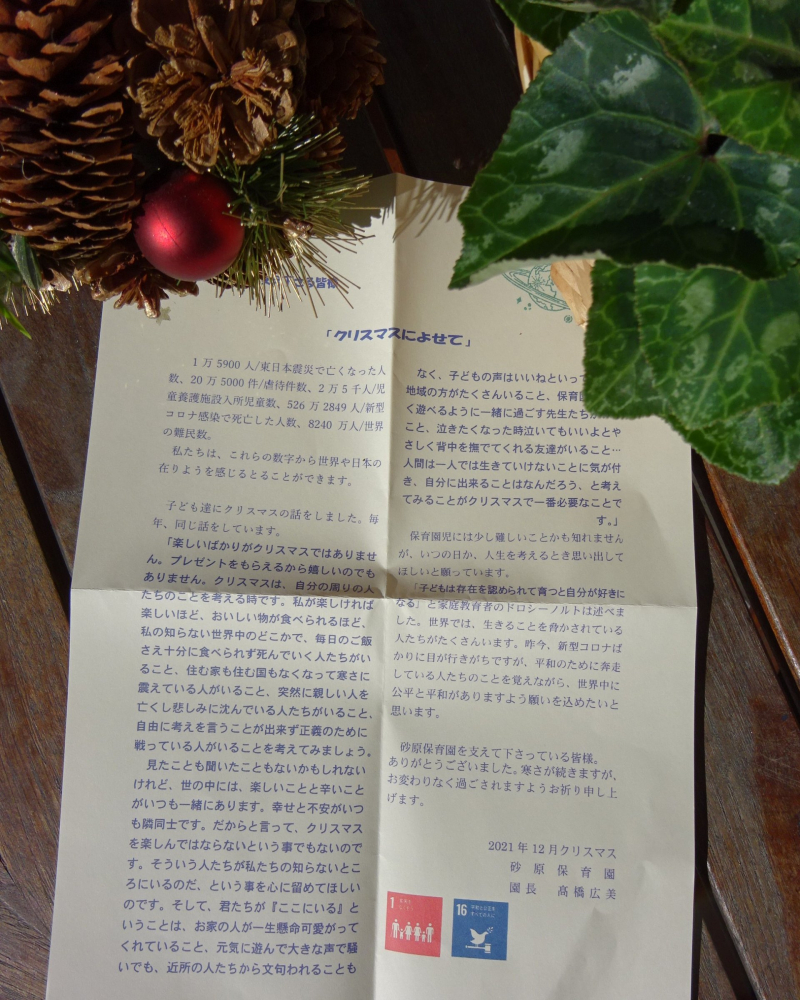 さる皆様
「クリスマスによせて」
1万5900人/東日本震災で亡くなった人
数、20万5000件/虐待件数、2万5千人/児
童養護施設入所児童数、526万2849人/新型
コロナ感染で死亡した人数、8240万人/世界
の難民数。
私たちは、これらの数字から世界や日本の
在りようを感じるとることができます。
子ども達にクリスマスの話をしました。毎
年、同じ話をしています。
「楽しいばかりがクリスマスではありませ
ん。プレゼントをもらえるから嬉しいのでも
ありません。クリスマスは、自分の周りの人
たちのことを考える時です。私が楽しければ
楽しいほど、おいしい物が食べられるほど、
私の知らない世界中のどこかで、毎日のご飯
さえ十分に食べられず死んでいく人たちがい
ること、住む家も住む国もなくなって寒さに
震えている人がいること、突然に親しい人を
亡くし悲しみに沈んでいる人たちがいること、
自由に考えを言うことが出来ず正義のために
戦っている人がいることを考えてみましょう。
見たことも聞いたこともないかもしれない
けれど、世の中には、楽しいことと辛いこと
がいつも一緒にあります。幸せと不安がいつ
も隣同士です。だからと言って、クリスマス
を楽しんではならないという事でもないので
す。そういう人たちが私たちの知らないとこ
ろにいるのだ、という事を心に留めてほしい
のです。そして、君たちが『ここにいる』と
いうことは、お家の人が一生懸命可愛がって
くれていること、元気に遊んで大きな声で騒
いでも、近所の人たちから文句われることも
なく、子どもの声はいいねといって
地域の方がたくさんいること、保育園
く遊べるように一緒に過ごす先生たちが
こと、泣きたくなった時泣いてもいいよとや
さしく背中を撫でてくれる友達がいること…
人間は一人では生きていけないことに気が付
き、自分に出来ることはなんだろう、と考え
てみることがクリスマスで一番必要なことで
す。」
保育園児には少し難しいことかも知れません
が、いつの日か、人生を考えるとき思い出して
ほしいと願っています。
「子どもは存在を認められて育つと自分が好きに
なる」と家庭教育者のドロシーノルトは述べま
した。世界では、生きることを脅かされている
人たちがたくさんいます。昨今、新型コロナば
かりに目が行きがちですが、平和のために奔走
している人たちのことを覚えながら、世界中に
公平と平和がありますよう願いを込めたいと
思います。
砂原保育園を支えて下さっている皆様。
ありがとうございました。寒さが続きますが、
お変わりなく過ごされますようお祈り申し上
げます。
2021年12月クリスマス
砂原保育園
園長 髙橋広美
1
16